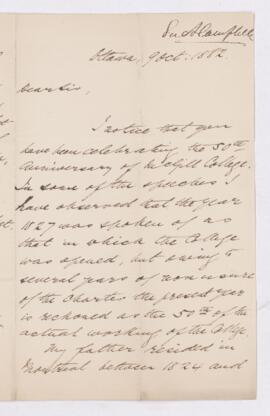 Sir A Campbell
Ottawa, 9 Oct. 1882.
Dear Sir,
I notice that you
have been celebrating the 50th
Anniversary of McGill College.
In some of the speeches I
have observed that the year
1827 was spoken of as
that in which the College
was opened, but owing to
several years of nonusure
of the Charter the present year
is reckoned as the 50th of the
actual working of the College.
My father resided in
Montreal between 1824 and